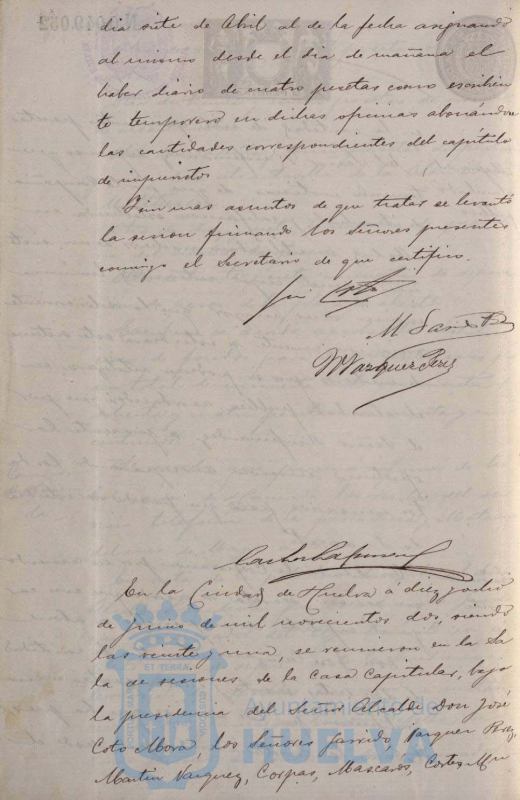 dia siete de Abril al de la fecha asignando
al mismo desde el dia de mañana el
haber diario de cuatro pesetas como escribien
te temporero en dichas oficinas abonándose
las cantidades correspondientes del capítulo
de imprevistos
Sin mas asuntos de que tratar se levantó
la sesion firmando los Señores presentes
conmigo el Secretario de que certifico.
M
Vazquez Perez
En la Ciudad de Huelva á diez y ocho
de Junio de mil novecientos dos, siendo
las veinte y una, se reunieron en la Sa
la de sesiones de la casa Capitular, bajo
la presidencia del Señor Alcalde Don José
Coto Mora, los Señores Garrido, Vazquez Perez,
Martin Vazquez, Corpas, Mascaros, Cortes, Mu
Ayuntamiento de
HUELVA